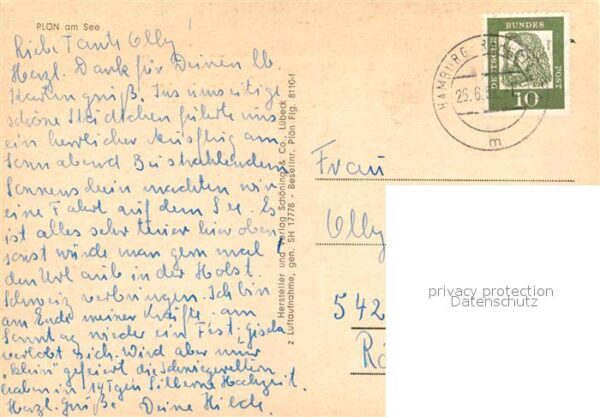 PLÖN am See
Liebe Tante Olly!
Herzl. Dank für Deinen lb.
Kartengruß. Ins umseitige
schöne Städtchen führte uns
ein herrlicher Ausflug am
Sonnabend. Bei strahlendem
Sonnenschein machten wir
eine Fahrt auf dem See. Es
ist alles sehr teuer hier oben
sonst würde man gern mal
den Urlaub in der Holst.
Schweiz verbringen. Ich bin
am Ende meiner Kräfte. am
Sonntag wieder ein Fest. Gisela
verlobt sich. Wird aber nur
"klein" gefeiert die Schwiegereltern
haben in 14 Tgen Silberne Hochzeit.
Herzl. Grüße Deine Hilde.
Hersteller und Verlag Schöning & Co., Lübeck
Luftaufnahme, gen. SH 17778 - Bestellnr. Plön Flg. 8110-f
HAMBURG
25.6.
m
DEUTSCHE BUNDES POST
10
Frau
Olly
542
privacy protection
Datenschutz